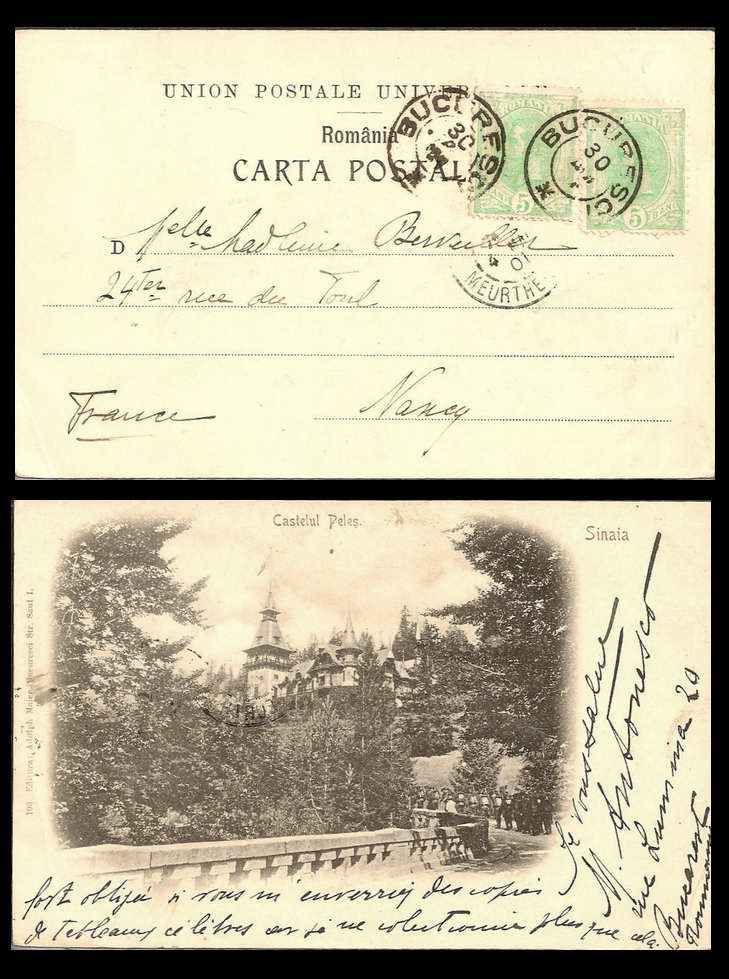 UNION POSTALE UNIVER
România
CARTA POSTAL
BUCURESCI
30
BUCURESCI
30
5 BANI 5
5 BANI
4
01
MEURTHE
D Melle Madleine
24ter rue du Toul
France
Nancy
Castelul Peleș.
Sinaia
100 Editura Adolph Maier, Bucuresci Str. Saul 1.
fort obligée si vous m'enverriez des copies
de tableaux célèbres car je ne collectionne plus que cela.
Je vous salue
M. Antonesco
rue Lumina 20
Bucarest
Roumanie